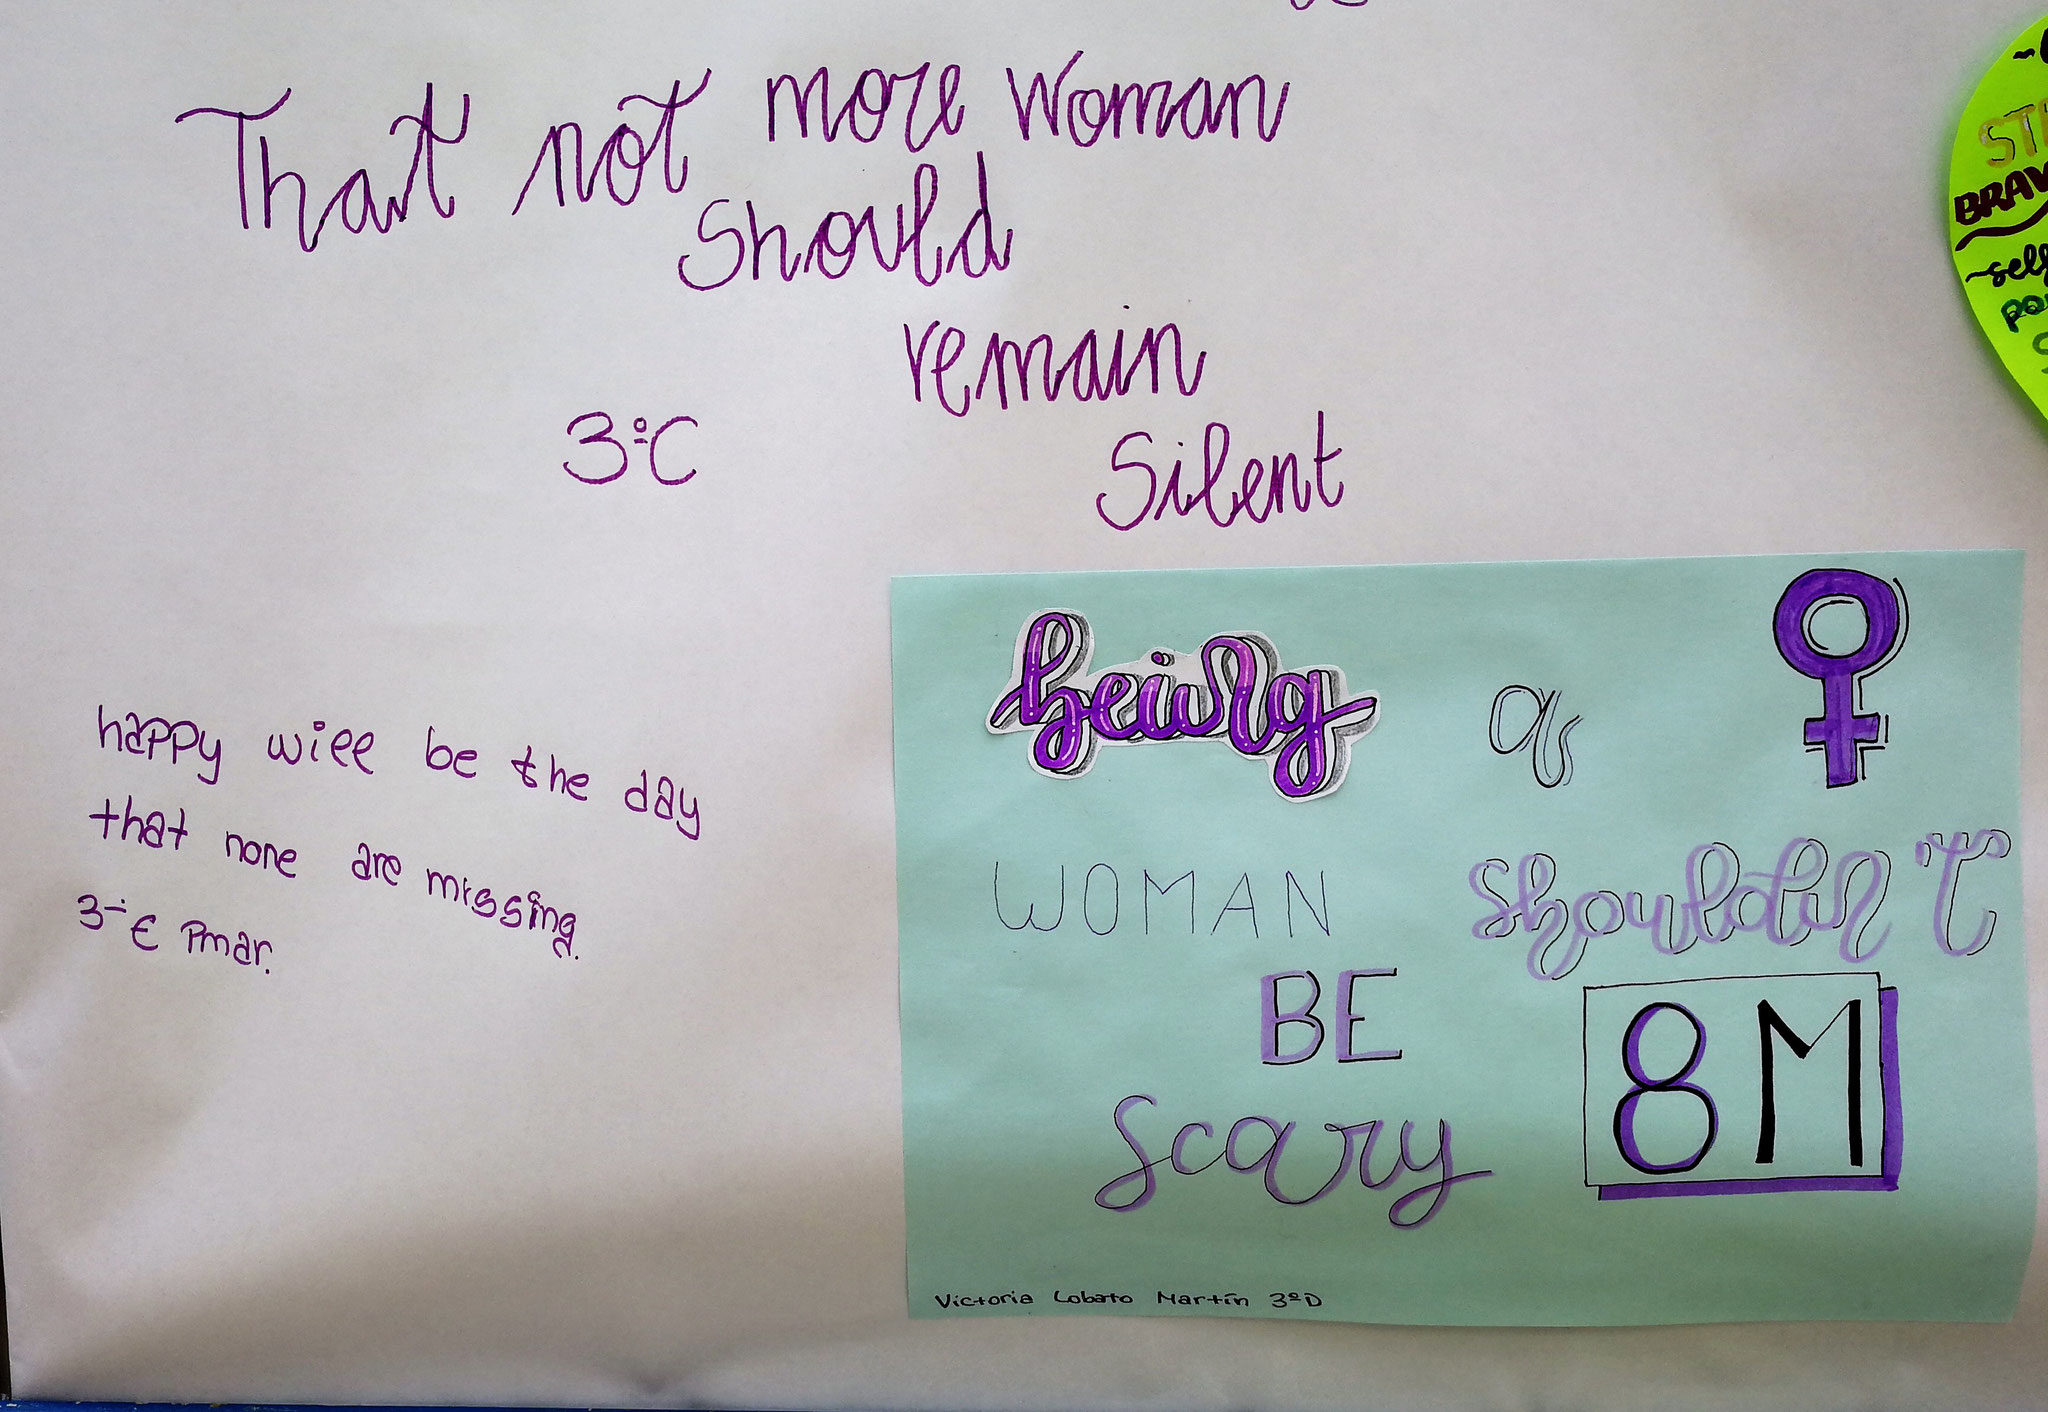 That not more Woman
Should
remain
Silent
3ºC
happy will be the day
that none are missing.
3º E Pmar.
being a
WOMAN shouldn't
BE
scary
8M
Victoria Lobato Martín 3ºD
BRAV
self